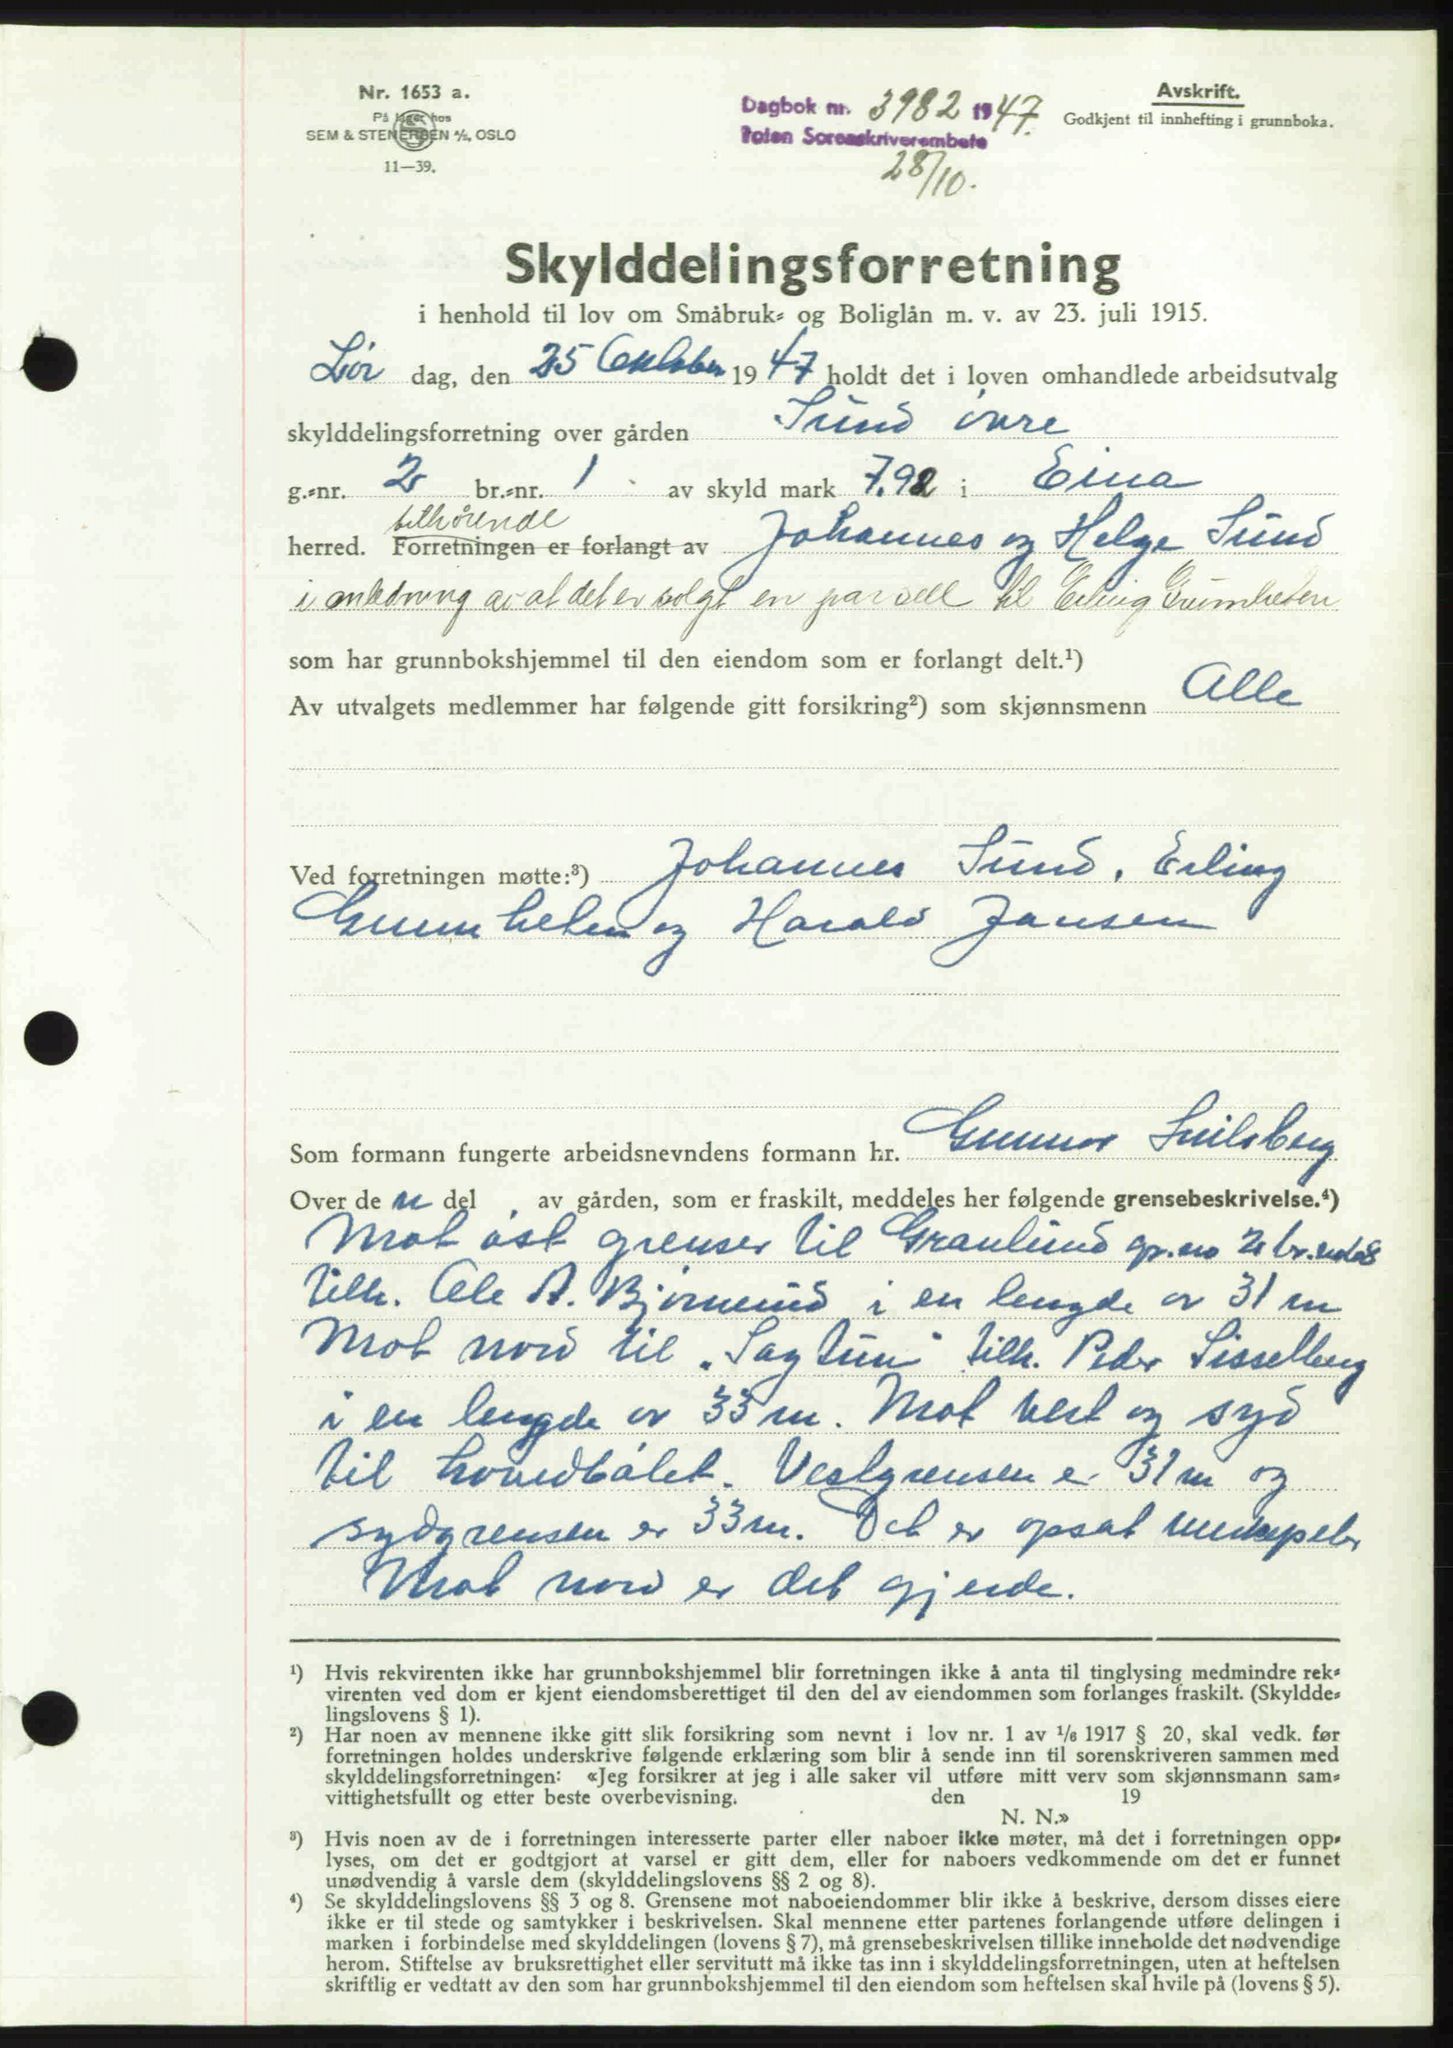 Nr. 1653 a.
På lager hos
SEM & STENERSEN A/S, OSLO
11—39.
Dagbok nr. 3982 1947.
Toten Sorenskriverembete
28/10.
Avskrift.
Godkjent til innhefting i grunnboka.
Skylddelingsforretning
i henhold til lov om Småbruk- og Boliglån m. v. av 23. juli 1915.
Lør dag, den 25 Oktober 1947 holdt det i loven omhandlede arbeidsutvalg
skylddelingsforretning over gården Sund övre
g.-nr. 2 br.-nr. 1 av skyld mark 7.92 i Eina
tilhørende
herred. Forretningen er forlangt av Johannes og Helge Sund
i anledning av at det er solgt en parsell til Erling Grimheden
som har grunnbokshjemmel til den eiendom som er forlangt delt.¹)
Av utvalgets medlemmer har følgende gitt forsikring²) som skjønnsmenn Alle
Ved forretningen møtte:³) Johannes Sund, Erling
og Harald Jansen
Som formann fungerte arbeidsnevndens formann hr. Gunnar
Over den del av gården, som er fraskilt, meddeles her følgende grensebeskrivelse.⁴)
Mot øst grenser til Granlund gr.no 2 br.no
tilh. Ole A. Bjørnerud i en lengde av 31 m
Mot nord til "Sagtun" tilh. Peder Sisselberg
i en lengde av 33 m. Mot vest og syd
til hovedbølet. Vestgrensen er 31 m og
sydgrensen er 33 m. Det er opsat merkepeler
Mot nord er det gjerde.
¹) Hvis rekvirenten ikke har grunnbokshjemmel blir forretningen ikke å anta til tinglysing medmindre rek-
virenten ved dom er kjent eiendomsberettiget til den del av eiendommen som forlanges fraskilt. (Skyldde-
lingslovens § 1).
²) Har noen av mennene ikke gitt slik forsikring som nevnt i lov nr. 1 av 1/6 1917 § 20, skal vedk. før
forretningen holdes underskrive følgende erklæring som blir å sende inn til sorenskriveren sammen med
skylddelingsforretningen: «Jeg forsikrer at jeg i alle saker vil utføre mitt verv som skjønnsmann sam-
vittighetsfullt og etter beste overbevisning. den 19
N. N.»
³) Hvis noen av de i forretningen interesserte parter eller naboer ikke møter, må det i forretningen opp-
lyses, om det er godtgjort at varsel er gitt dem, eller for naboers vedkommende om det er funnet
unødvendig å varsle dem (skylddelingslovens §§ 2 og 8).
⁴) Se skylddelingslovens §§ 3 og 8. Grensene mot naboeiendommer blir ikke å beskrive, dersom disses eiere
ikke er til stede og samtykker i beskrivelsen. Skal mennene etter partenes forlangende utføre delingen i
marken i forbindelse med skylddelingen (lovens § 7), må grensebeskrivelsen tillike inneholde det nødvendige
herom. Stiftelse av bruksrettighet eller servitutt må ikke tas inn i skylddelingsforretningen, uten at heftelsen
skriftlig er vedtatt av den som har grunnbokshjemmel til den eiendom som heftelsen skal hvile på (lovens § 5).